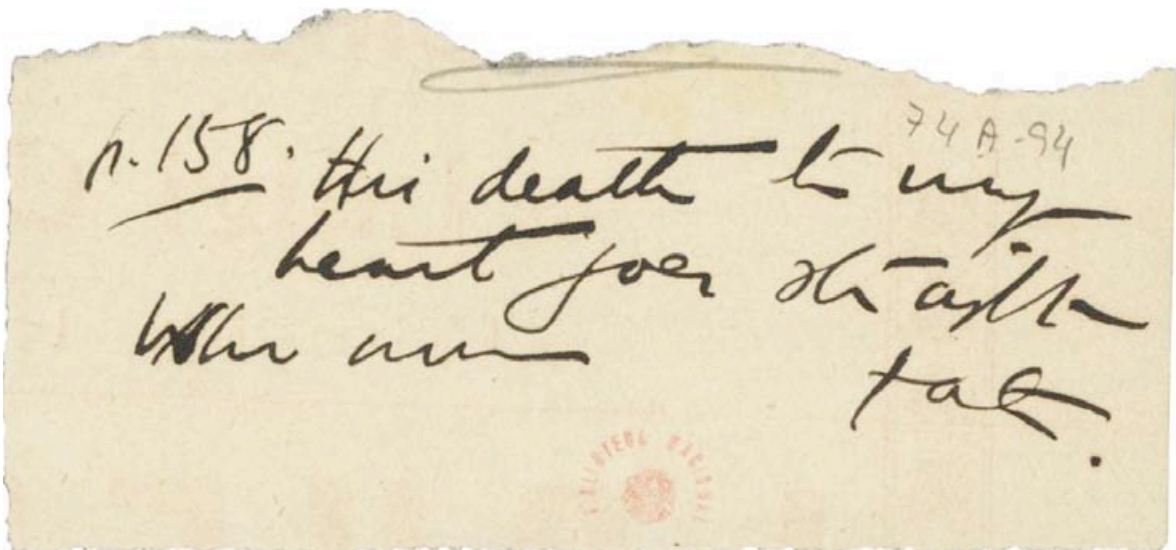 74A-94
p. 158. His death to my
heart goes straight
tak.
BIBLIOTECA NACIONAL